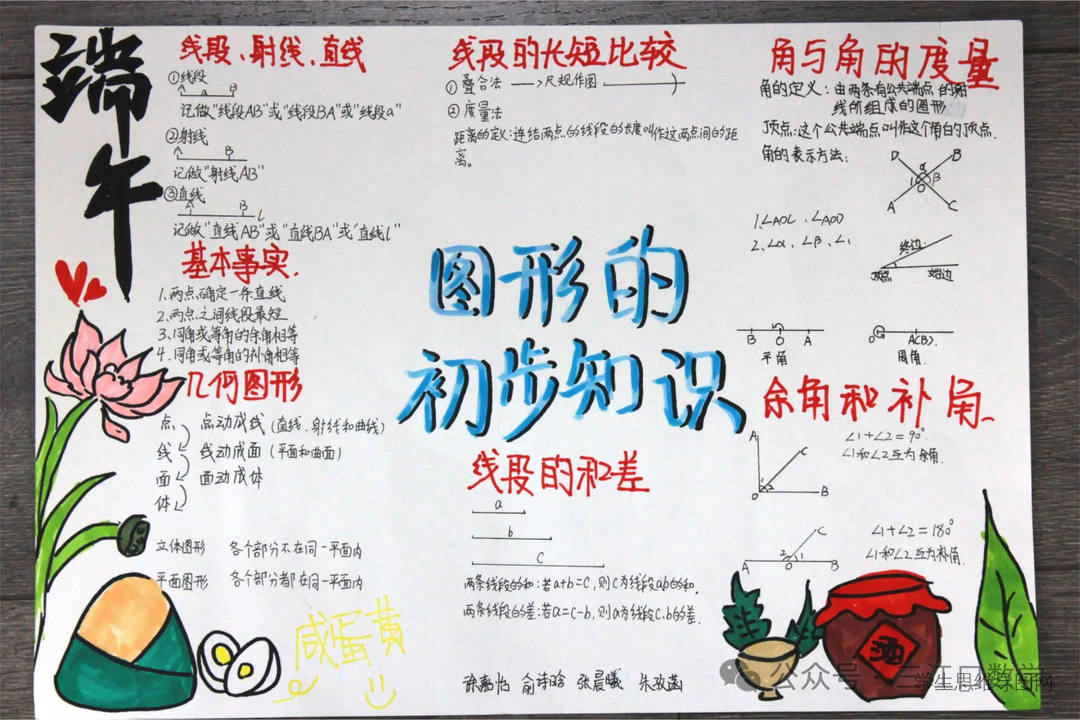 端午
线段、射线、直线
①线段
A a B
记做"线段AB"或"线段BA"或"线段a"
②射线
A B
记做"射线AB"
③直线
A B l
记做"直线AB"或"直线BA"或"直线l"
基本事实.
1.两点确定一条直线
2.两点之间线段最短
3.同角或等角的余角相等
4.同角或等角的补角相等
几何图形
点 点动成线(直线、射线和曲线)
线 线动成面(平面和曲面)
面 面动成体
体
立体图形 各个部分不在同一平面内
平面图形 各个部分都在同一平面内
咸蛋黄
线段的长短比较
①叠合法 → 尺规作图
②度量法
距离的定义:连结两点的线段的长度叫作这两点间的距
离。
图形的
初步知识
线段的和差
a
b
c
两条线段的和:若a+b=c,则c为线段ab的和.
两条线段的差:若a=c-b,则a为线段c.b的差.
张晨曦
角与角的度量
角的定义:由两条有公共端点的射
线所组成的图形
顶点:这个公共端点叫作这个角的顶点.
角的表示方法:
D B
α
1 β
O
A C
1.∠AOC、∠AOD
2.∠α、∠β、∠1
终边
顶点 始边
B O A
平角
O A(B).
周角.
余角和补角.
A
C
1 2
O B
∠1+∠2=90°.
∠1和∠2互为余角.
C
2 1
A O B
∠1+∠2=180°
∠1和∠2互为补角.
酒
公众号·三江口数学
学生思维导图网